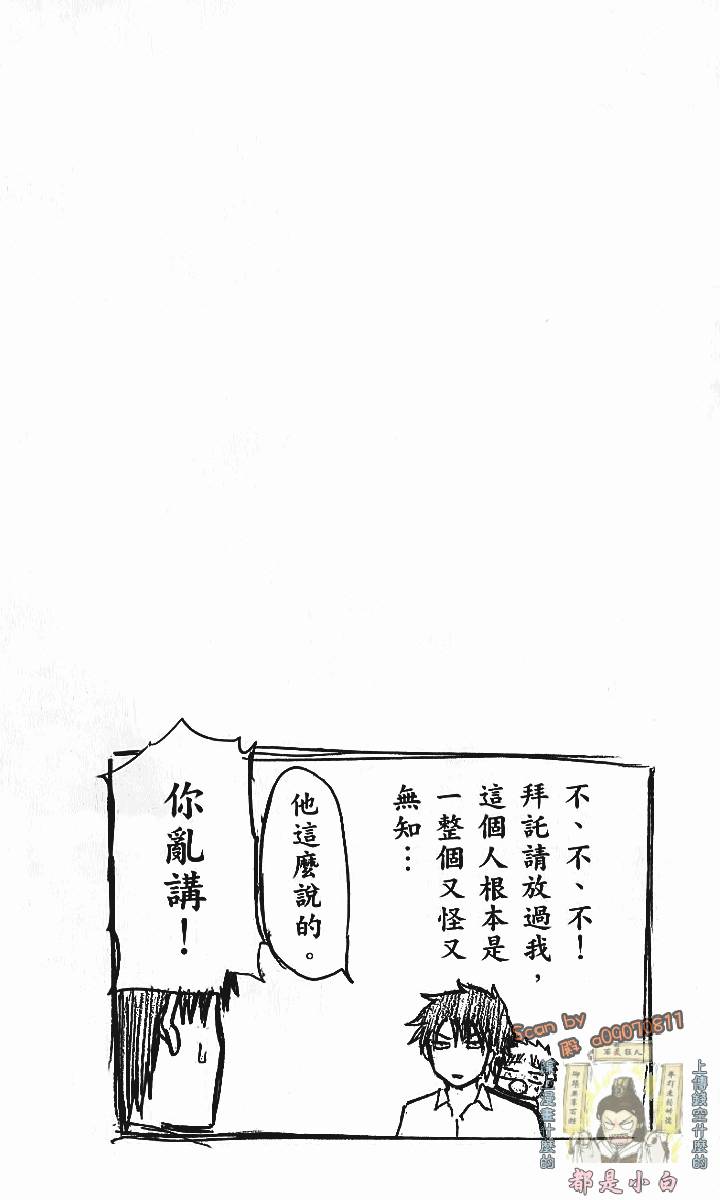 不、不、不！
拜託請放過我，
這個人根本是
一整個又怪又
無知…
他這麼說的。
你亂講！
Scan by
殿 a09070811
上傳錢空什麼的
除上漫畫什麼的
都是小白